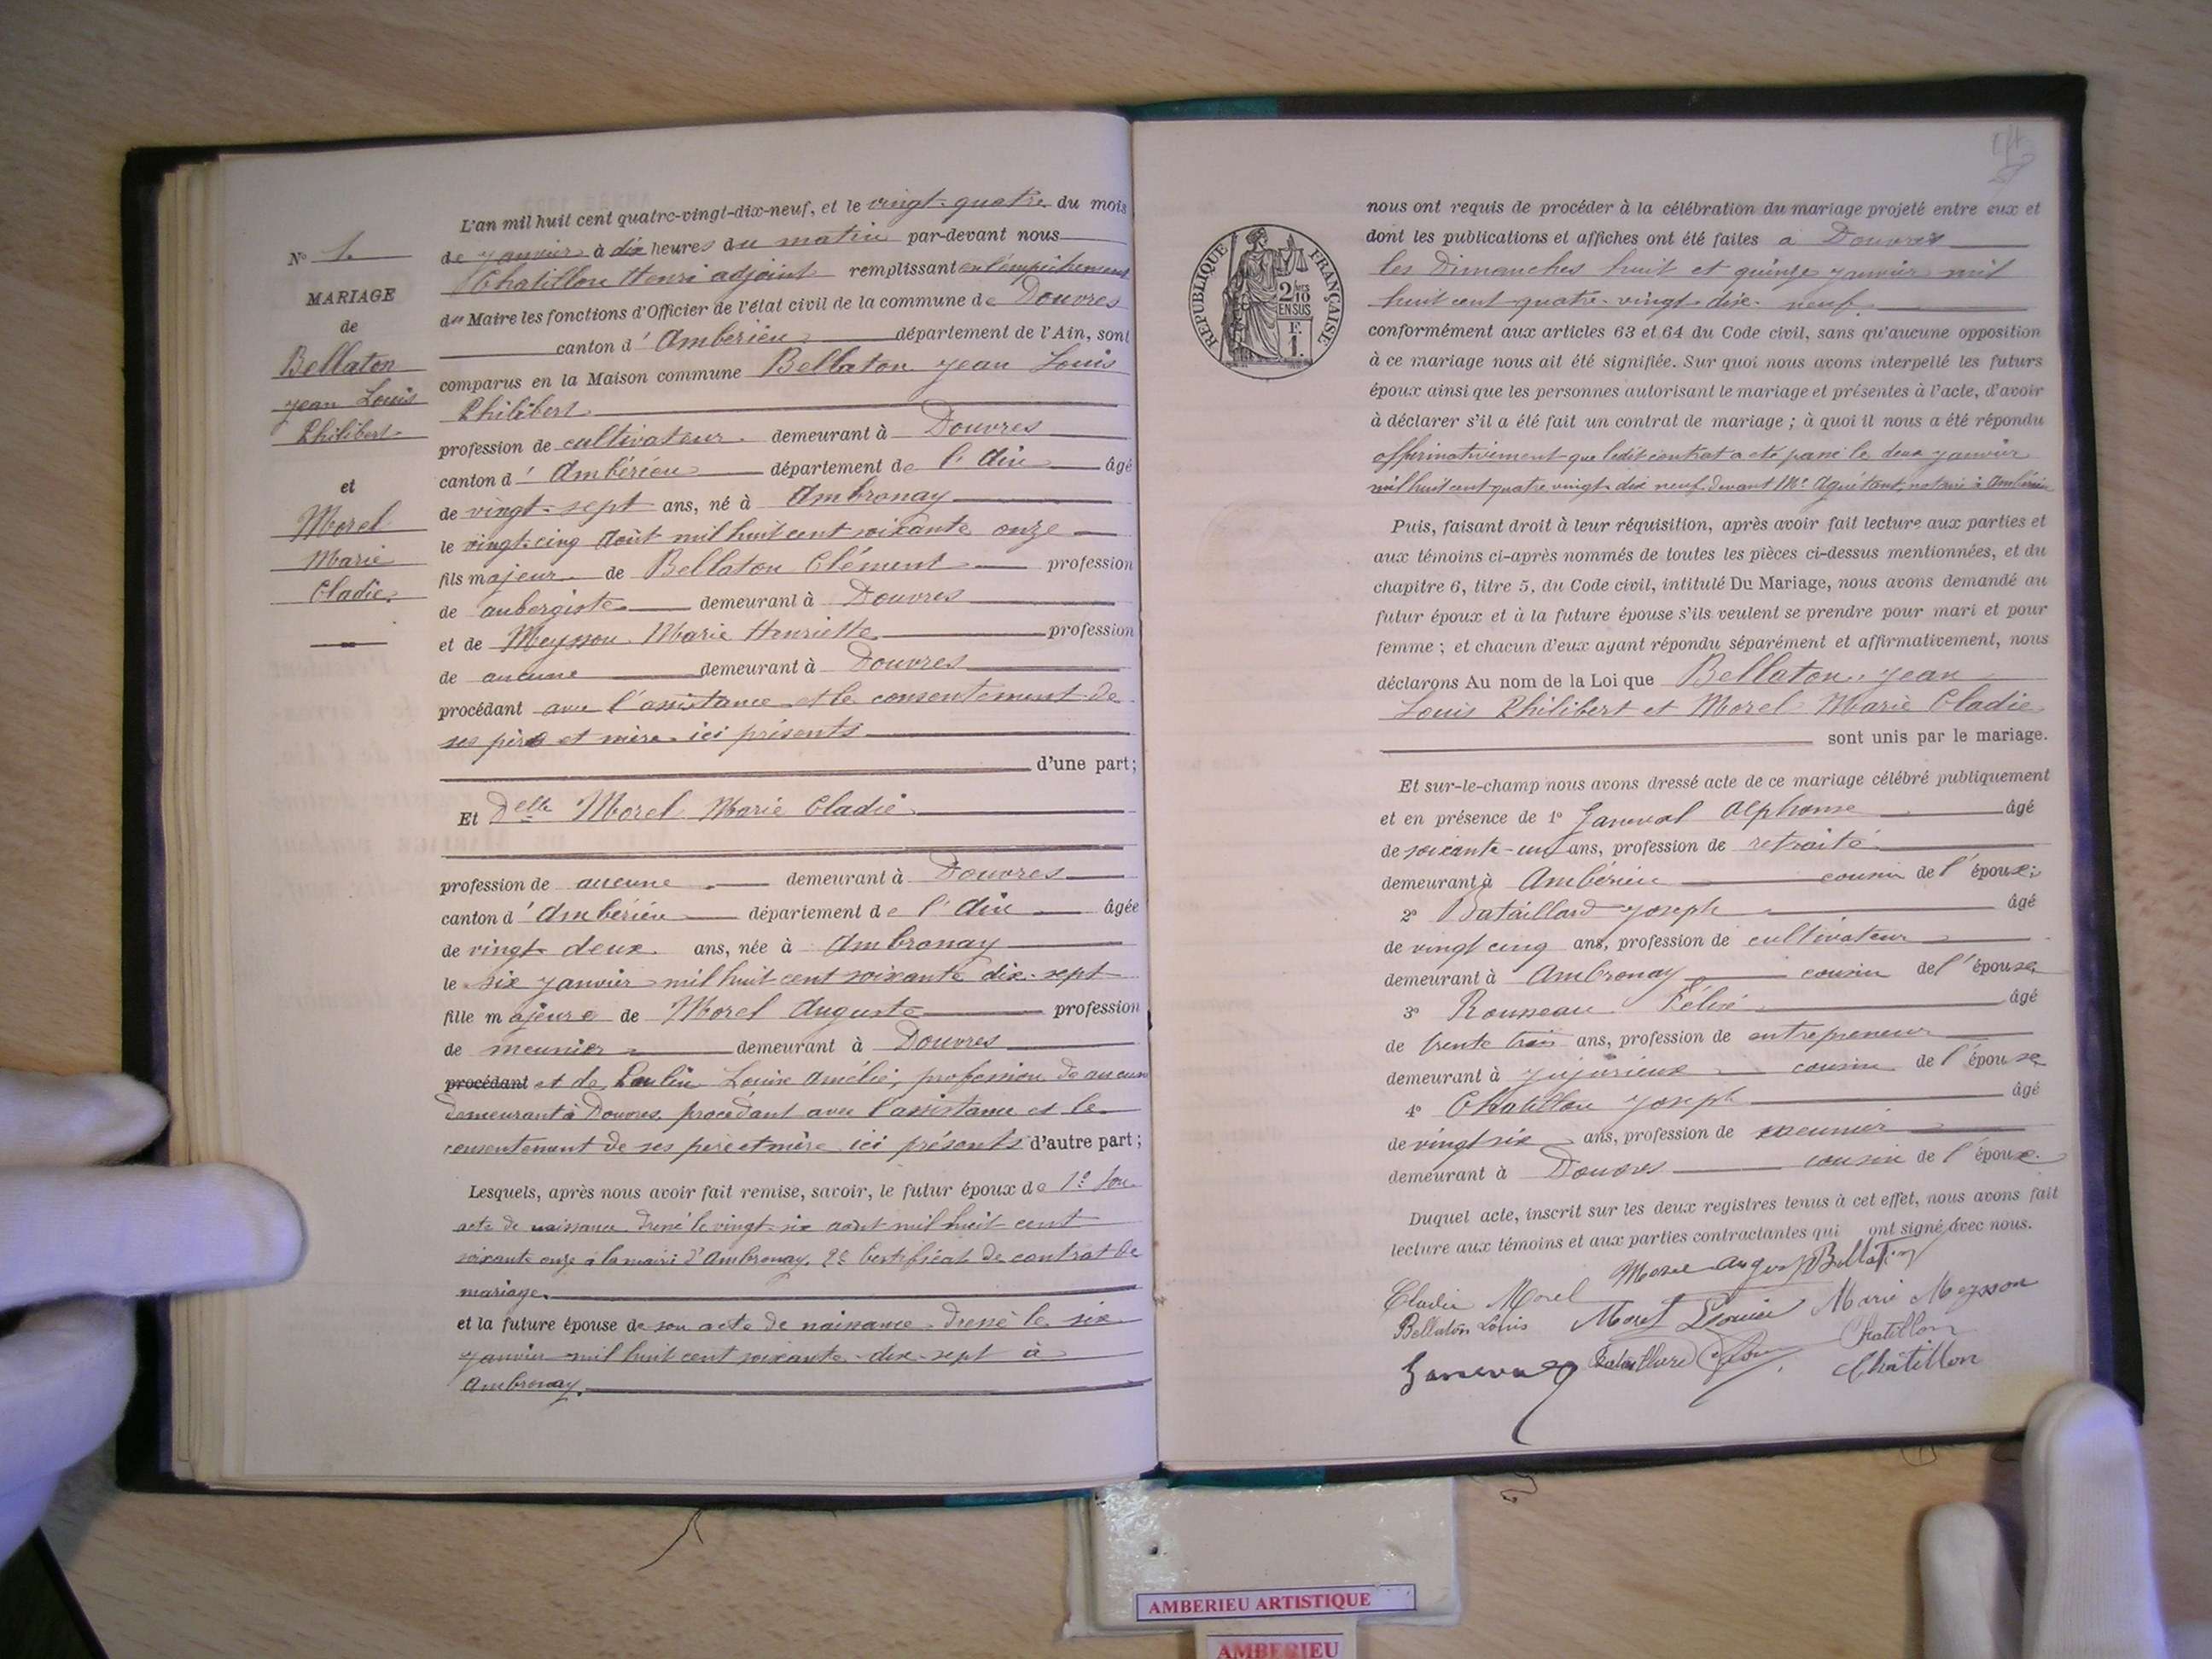 L'an mil huit cent quatre-vingt-dix-neuf, et le vingt-quatre du mois
de janvier à dix heures du matin par-devant nous
Chatillon Henri adjoint remplissant en l'empêchement
du Maire les fonctions d'Officier de l'état civil de la commune de Douvres
canton d'Ambérieu département de l'Ain, sont
comparus en la Maison commune Bellaton Jean Louis
Philibert
profession de cultivateur demeurant à Douvres
canton d'Ambérieu département de l'Ain âgé
de vingt-sept ans, né à Ambronay
le vingt-cinq Août mil huit cent soixante onze
fils majeur de Bellaton Clément profession
de aubergiste demeurant à Douvres
et de Meysson Marie Henriette profession
de aucune demeurant à Douvres
procédant avec l'assistance et le consentement de
ses père et mère ici présents
d'une part;
Et Delle Morel Marie Cladie
profession de aucune demeurant à Douvres
canton d'Ambérieu département de l'Ain âgée
de vingt-deux ans, née à Ambronay
le six janvier mil huit cent soixante dix-sept
fille majeure de Morel Auguste profession
de meunier demeurant à Douvres
procédant et de Louise Amélie, profession de aucune
demeurant à Douvres, procédant avec l'assistance et le
consentement de ses père et mère ici présents d'autre part;
Lesquels, après nous avoir fait remise, savoir, le futur époux de 1° Son
acte de naissance dressé le vingt-six août mil huit cent
soixante onze à la mairie d'Ambronay, 2° Certificat de contrat de
mariage.
et la future épouse de son acte de naissance dressé le six
janvier mil huit cent soixante-dix-sept à
Ambronay.
N° 1.
MARIAGE
de
Bellaton
Jean Louis
Philibert
et
Morel
Marie
Cladie
RÉPUBLIQUE FRANÇAISE
2/10
EN SUS
F.
1.
nous ont requis de procéder à la célébration du mariage projeté entre eux et
dont les publications et affiches ont été faites à Douvres
les Dimanches huit et quinze janvier mil
huit cent quatre-vingt-dix-neuf.
conformément aux articles 63 et 64 du Code civil, sans qu'aucune opposition
à ce mariage nous ait été signifiée. Sur quoi nous avons interpellé les futurs
époux ainsi que les personnes autorisant le mariage et présentes à l'acte, d'avoir
à déclarer s'il a été fait un contrat de mariage; à quoi il nous a été répondu
affirmativement que ledit contrat a été passé le deux janvier
mil huit cent quatre vingt dix neuf devant Me Aguétant, notaire à Ambérieu
Puis, faisant droit à leur réquisition, après avoir fait lecture aux parties et
aux témoins ci-après nommés de toutes les pièces ci-dessus mentionnées, et du
chapitre 6, titre 5, du Code civil, intitulé Du Mariage, nous avons demandé au
futur époux et à la future épouse s'ils veulent se prendre pour mari et pour
femme; et chacun d'eux ayant répondu séparément et affirmativement, nous
déclarons Au nom de la Loi que Bellaton Jean
Louis Philibert et Morel Marie Cladie
sont unis par le mariage.
Et sur-le-champ nous avons dressé acte de ce mariage célébré publiquement
et en présence de 1° Janeval Alphonse âgé
de soixante-un ans, profession de retraité
demeurant à Ambérieu cousin de l'époux;
2° Bataillard Joseph âgé
de vingt cinq ans, profession de cultivateur
demeurant à Ambronay cousin de l'épouse
3° Rousseau Félix âgé
de trente trois ans, profession de entrepreneur
demeurant à Jujurieux cousin de l'épouse
4° Chatillon Joseph âgé
de vingt six ans, profession de meunier
demeurant à Douvres cousin de l'époux
Duquel acte, inscrit sur les deux registres tenus à cet effet, nous avons fait
lecture aux témoins et aux parties contractantes qui ont signé avec nous.
Morel Bellaton
Cladie Morel Morel Louise Marie Meysson
Bellaton Louis Chatillon
Janeval Bataillard Chatillon
AMBERIEU ARTISTIQUE
AMBERIEU